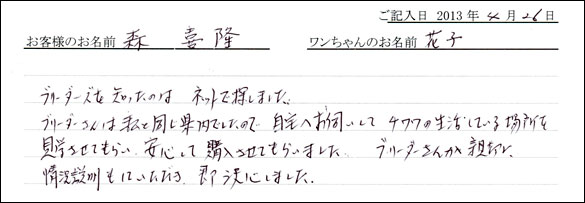 ご記入日 2013年 4月 26日
お客様のお名前 森 喜隆 ワンちゃんのお名前 花子
ブリーダーズを知ったのは ネットで探しました。
ブリーダーさんは私と同じ県内でしたので 自宅へお伺いして チワワの生活している場所を
見学させてもらい、安心して購入させてもらいました。 ブリーダーさんが親切で、
情況説明もしていただき、即決にしました。